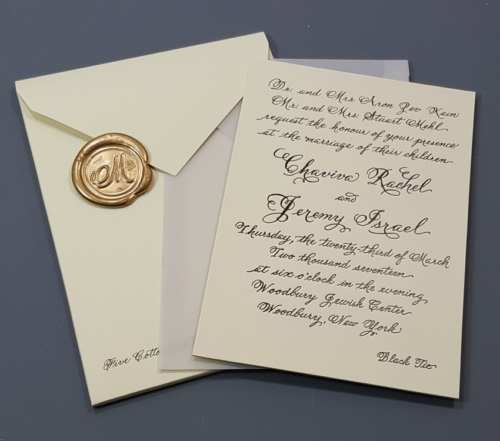 Dr. and Mrs. Aron Zev Kain
Mr. and Mrs. Stuart Mehl
request the honour of your presence
at the marriage of their children
Chaviva Rachel
and
Jeremy Israel
Thursday, the twenty-third of March
Two thousand seventeen
at six o'clock in the evening
Woodbury Jewish Center
Woodbury, New York
Black Tie
M
Five Cotto